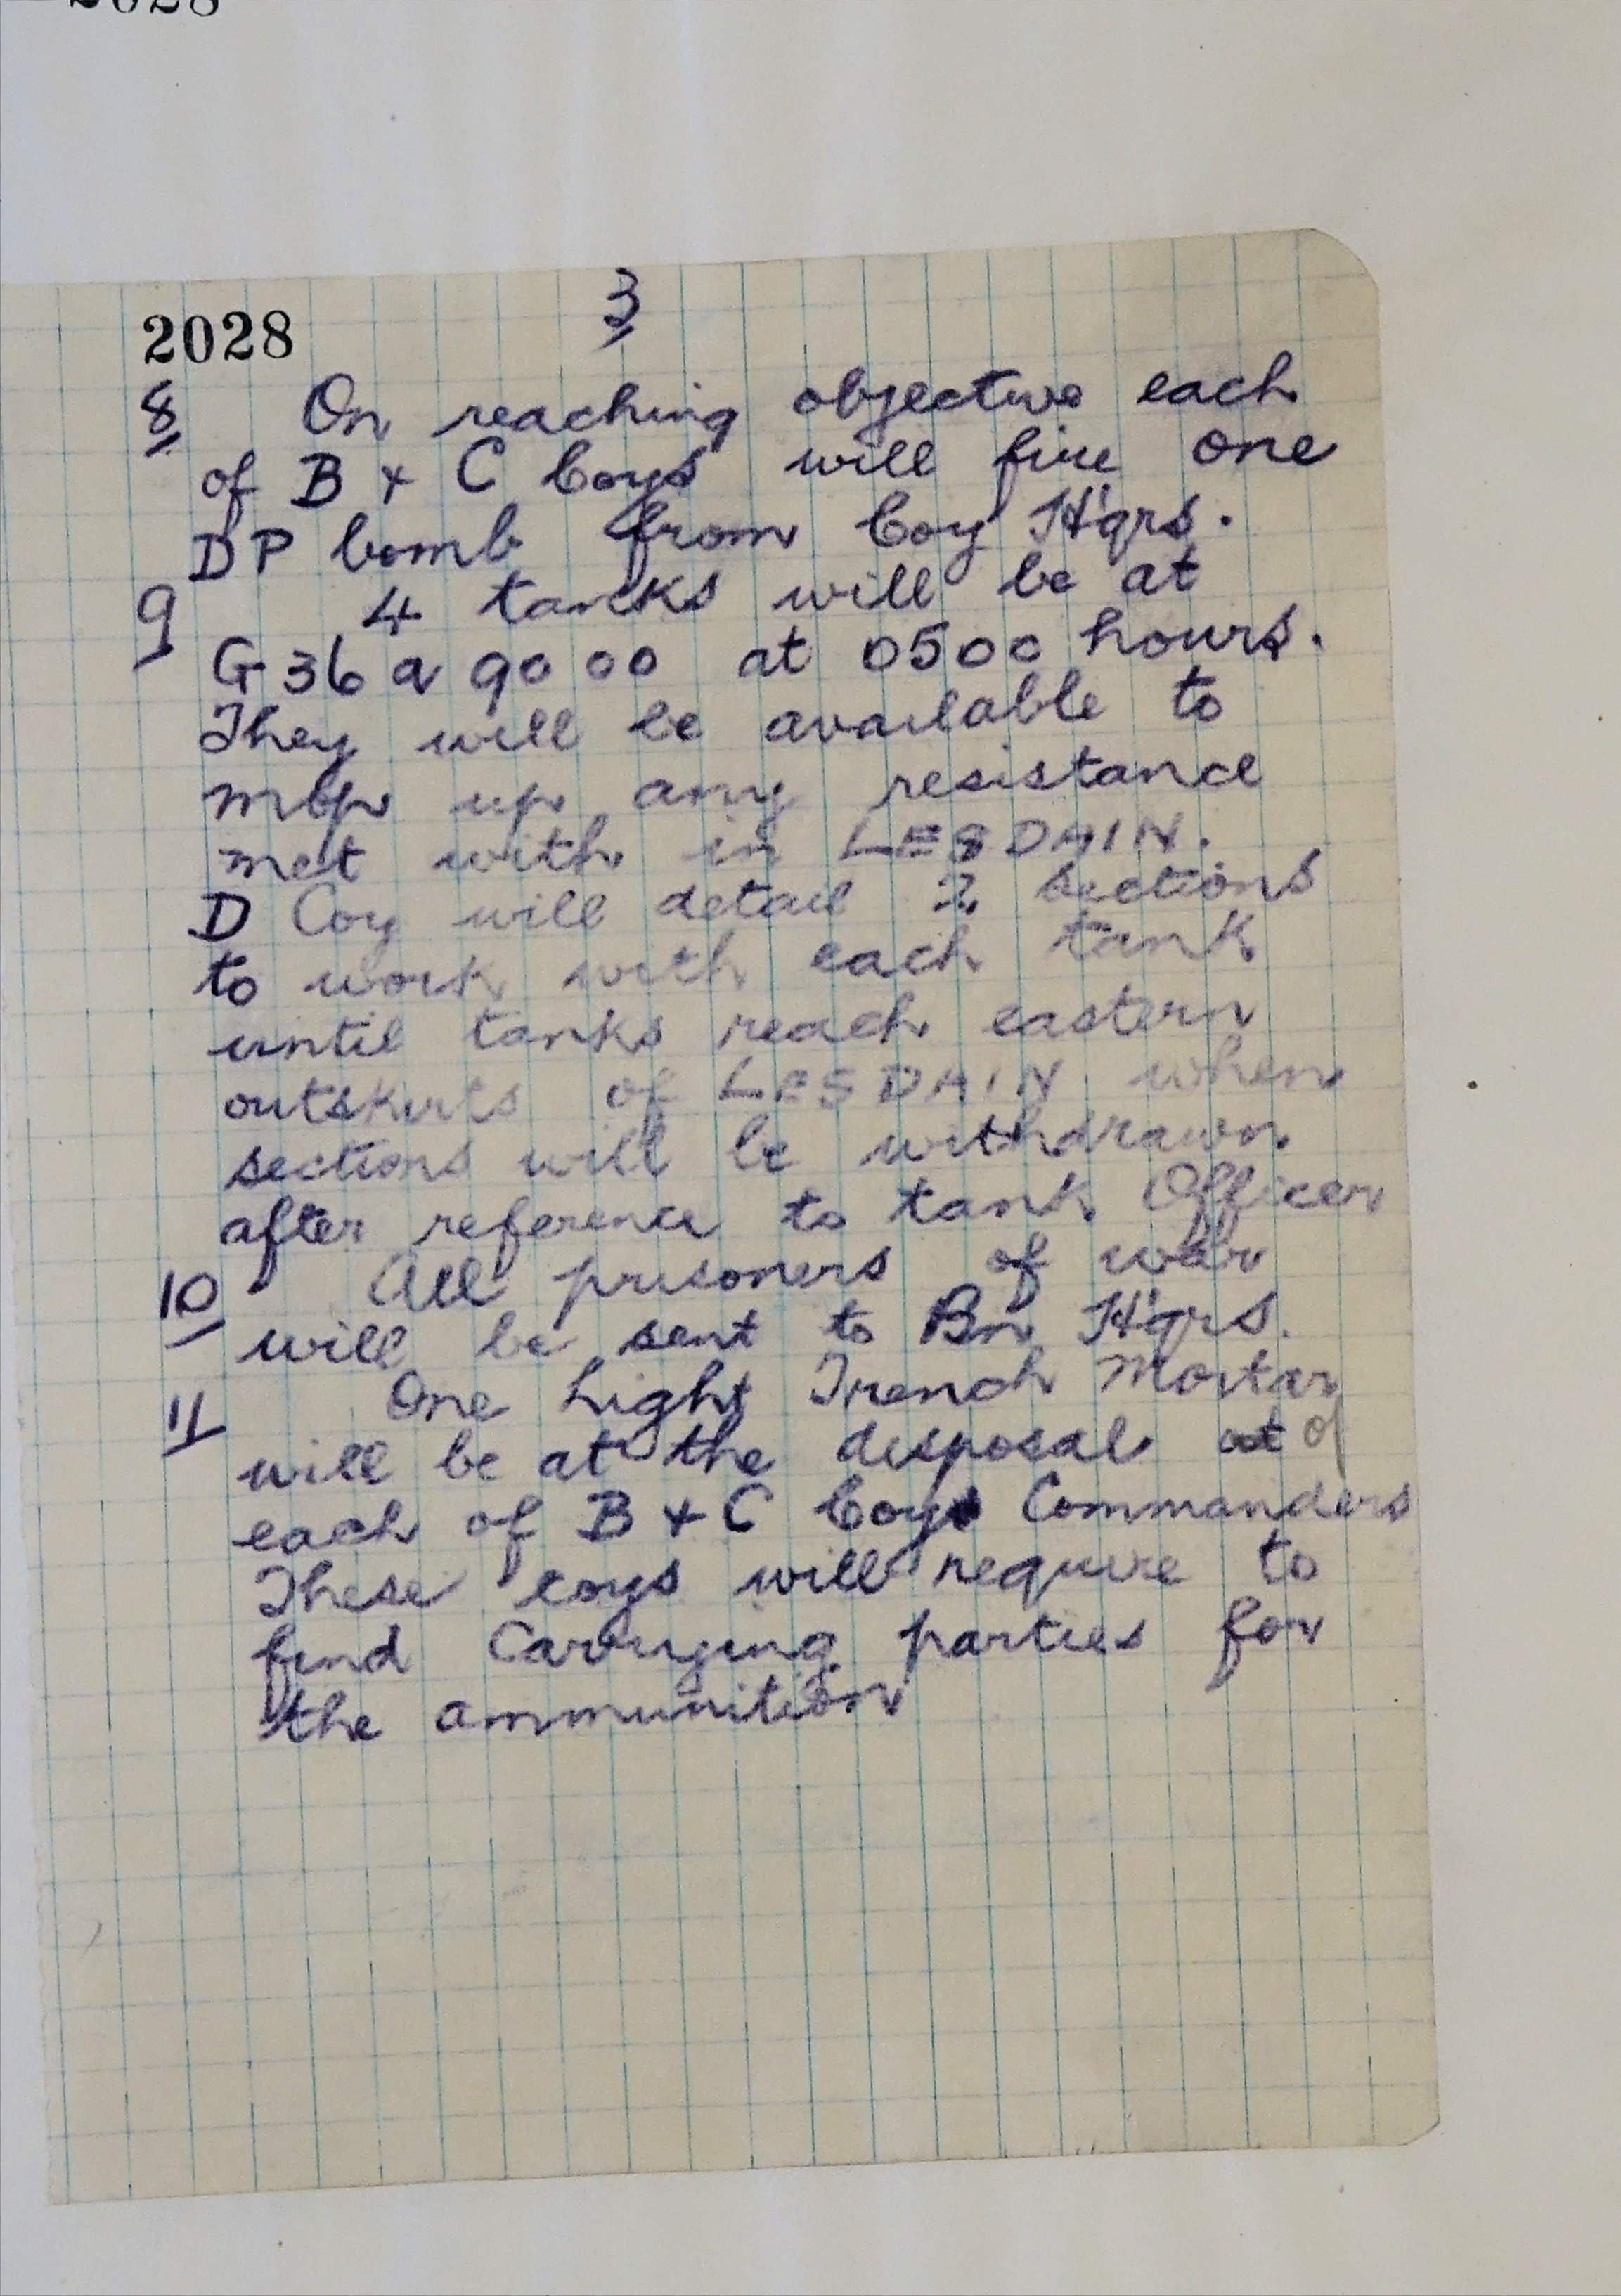 2028
2028 3
8 On reaching objective each
of B + C Coys will fire one
DP bomb from Coy H'qrs.
9 4 tanks will be at
G 36 a 90 00 at 0500 hours.
They will be available to
mop up any resistance
met with in LESDAIN.
D Coy will detail 2 sections
to work with each tank
until tanks reach eastern
outskirts of LESDAIN when
sections will be withdrawn
after reference to tank Officer
10 All prisoners of war
will be sent to Bn H'qrs.
11 One Light Trench Mortar
will be at the disposal of
each of B + C Coy Commanders
These coys will require to
find Carrying parties for
the ammunition